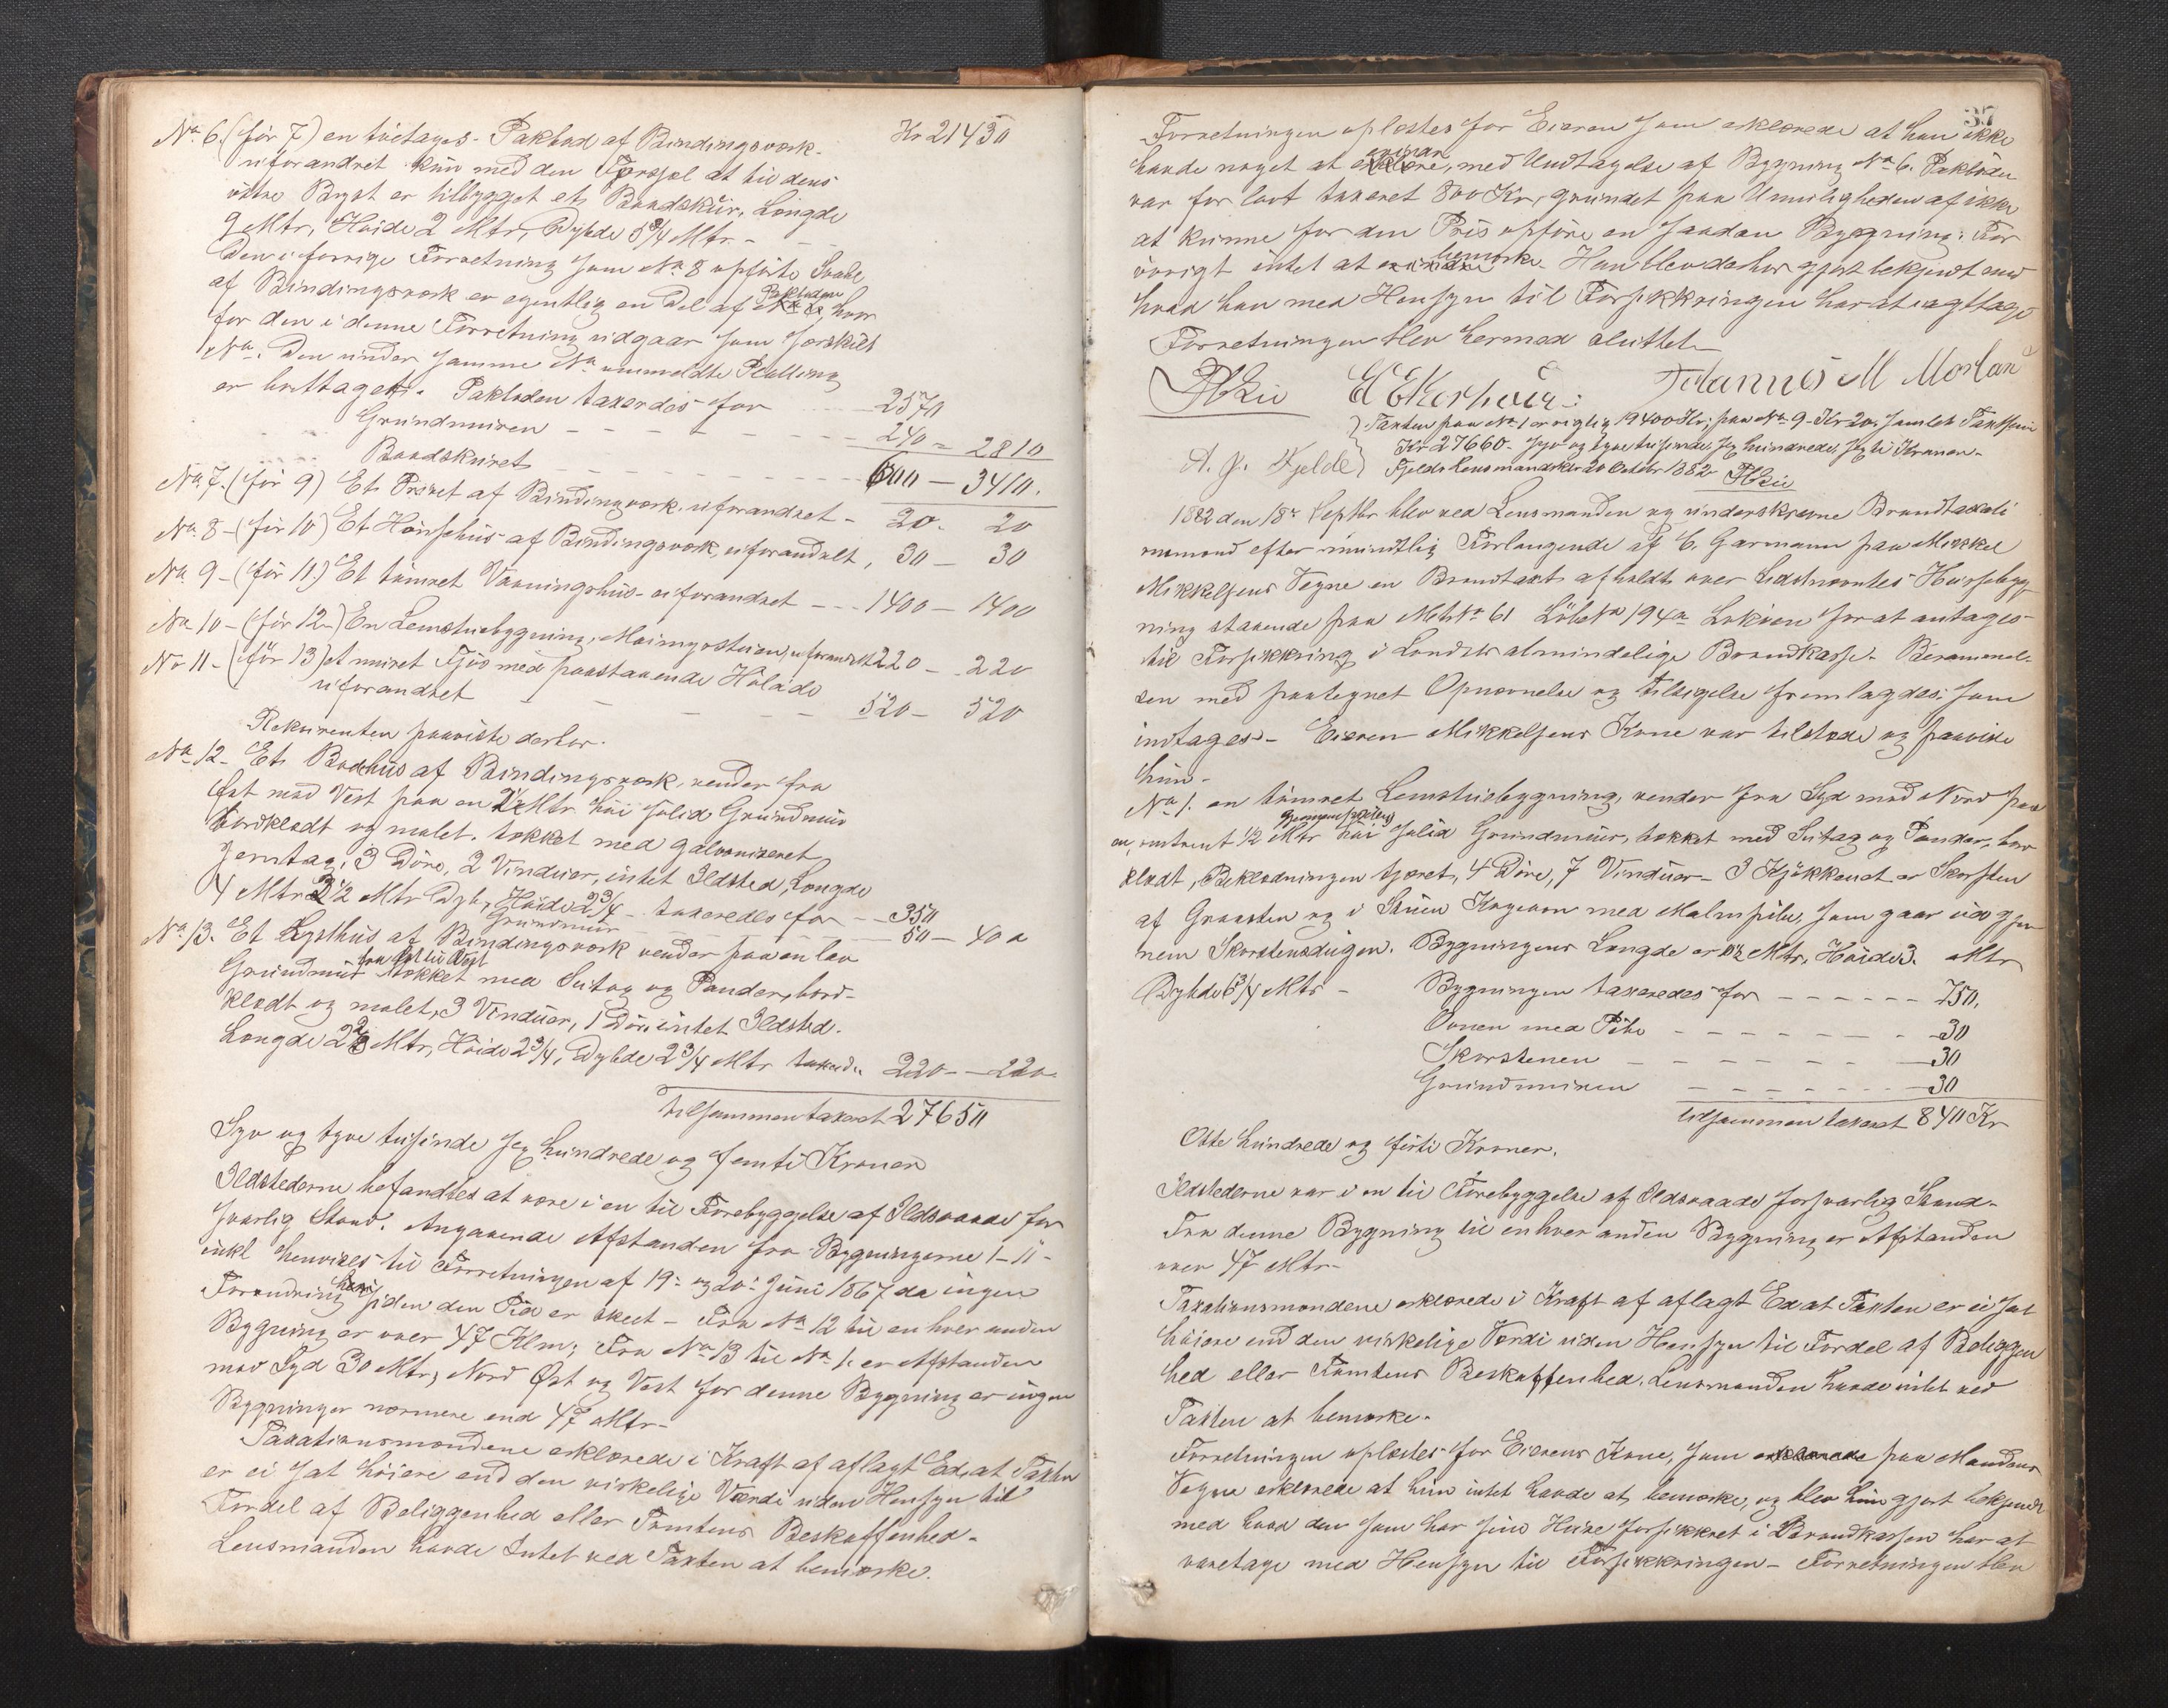 No 6. (før 7) en toetages Pakbod af Bindingsverk Kr 21430
uforandret kun med den Forskjel at til dens
østre Bryst er tilbygget et Baadskur, Længde
9 Mtr, Høide 2 Mtr, Dybde 5 3/4 Mtr -
Den i forrige Forretning som No 8 opførte Svale
af Bindingsverk er egentlig en Del af Pakboden, hvor
for den i denne Forretning udgaar som særskilt
No. Den under samme No anmeldte
er borttaget. Pakboden taxeredes for 2570
Grundmuren 240 = 2810
Baadskuret 600 - 3410.
No 7. (før 9) Et Privet af Bindingsverk, uforandret - 20. 20
No 8 - (før 10) Et Hønsehus af Bindingsverk, uforandret, 30 - 30
No 9 - (før 11.) Et tømret Vaaningshus - uforandret - - 1400 - 1400
No 10 - (før 12 -) En Lemstuebygning, uforandret 220 - 220
No 11 - (før 13) et muret Fjøs med paastaaende Hølade
uforandret - - - - 520 - 520
Rekvirenten paaviste derhos.
No 12 - Et Badhus af Bindingsverk, vender fra
Øst mod Vest paa en 2 Mtr høi solid Grundmur
bordklædt og malet. tækket med galvaniseret
Jerntag, 3 Døre, 2 Vinduer, intet Ildsted, Længde
4 Mtr 3 1/2 Mtr Dyb, Høide 2 3/4 - taxeredes for - - 350
Grundmur 50 - 400
No 13. Et Lysthus af Bindingsverk vender paa en lav
Grundmur fra Øst til Vest tækket med Sutag og Pander, bord-
klædt og malet, 3 Vinduer, 1 Dør, intet Ildsted.
Længde 2 2/3 Mtr, Høide 2 3/4, Dybde 2 3/4 Mtr taxeredes 220 - 220
tilsammen taxeret 27650
Syv og tyve tusinde sex hundrede og femti Kroner
Ildstederne befandtes at være i en til Forebyggelse af Ildsvaade for
svarlig Stand. Angaaende Afstanden fra Bygningerne 1 - 11 -
inkl henvises til Forretningen af 19de og 20de Juni 1867 da ingen
Forandring heri siden den Tid er skeet - Fra No 12 til enhver anden
Bygning er over 47 Mtr; Fra No 13 til No 1. er Afstanden
mod Syd 30 Mtr, Nord Øst og Vest for denne Bygning er ingen
Bygninger nærmere end 47 Mtr -
Taxationsmændene erklærede i Kraft af aflagt Ed, at Taxten
er ei sat høiere end den virkelige Værdi uden Hensyn til
Fordel af Beliggenhed eller Tomtens Beskaffenhed -
Lensmanden havde Intet ved Taxten at bemærke.
35
Forretningen oplæstes for Eieren som erklærede at han ikke
havde noget at erindre, med Undtagelse af Bygning No 6. Pakboden
var for lavt taxeret 800 Kr, grundet paa Umuligheden af ikke
at kunne for den Pris opføre en saadan Bygning; For
øvrigt intet at bemærke. Han blev derhos gjort bekjendt med
hvad han med Hensyn til Forsikkringen har at iagttage
Forretningen blev hermed sluttet.
Johannes M Morland
A. J. Fjelde } Taxten paa No 1 er rigtig 19400 Kr; paa No 9 - Kr 20. Samlet Taxtsum
Kr 27660 - syv og tyve tusinde sex hundrede sexti Kroner -
Fjelds Lensmandsktr 20 Octbr 1882
1882 den 18de Septbr blev ved Lensmanden og underskrevne Brandtaxati
onsmænd efter mundtlig Forlangende af C. Garmann paa Mikkel
Mikkelsens Vegne en Brandtaxt afholdt over Sidstnævntes Husebyg
ning staaende paa Mat No 61 Løbe No 194a for at antages
til Forsikkring i Landets almindelige Brandkasse. Berammel-
sen med paategnet Opnævnelse og Tilsigelse fremlagdes; som
indtages - Eieren Mikkelsens Kone var tilstede og paaviste
hun -
No 1. en tømret Lemstuebygning, vender fra Syd mod Nord paa
en omtrent 1/2 Mtr gjennemsnitlig høi solid Grundmur, tækket med Sutag og Pander, bor
klædt, Beklædningen tjæret, 4 Døre, 7 Vinduer - I Kjøkkenet er Skorsten
af Graasten og i Stuen Kogeovn med Malmpibe, som gaar ud gjen
nem Skorstenspigen. Bygningens Længde er 12 Mtr, Høide 3. Mtr
Dybde 6 3/4 Mtr - Bygningen taxeredes for - - - - - - 750.
Ovnen med Pibe - - - - - - - 30
Skorstenen - - - - - - 30
Grundmuren - - - - - - 30
tilsammen taxeret 840 Kr
Otte hundrede og førti Kroner.
Ildstederne var i en til Forebyggelse af Ildsvaade forsvarlig Stand -
Fra denne Bygning til enhver anden Bygning er Afstanden
over 47 Mtr -
Taxationsmændene erklærede i Kraft af aflagt Ed at Taxten er ei sat
høiere end den virkelige Værdi uden Hensyn til Fordel af Beliggen
hed eller Tomtens Beskaffenhed. Lensmanden havde intet ved
Taxten at bemærke.
Forretningen oplæstes for Eierens Kone, som erklærede paa Mandens
Vegne erklærede at hun intet havde at bemærke, og blev hun gjort bekjendt
med hvad den som har sine Huse forsikkret i Brandkassen har at
varetage med Hensyn til Forsikkringen - Forretningen blev